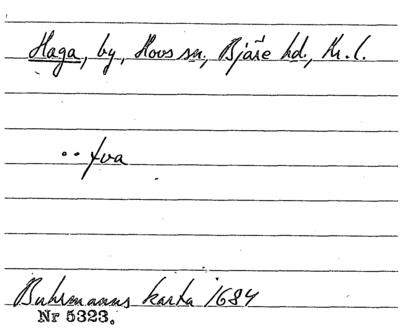 Haga, by, Hovs sn, Bjäre hd., Kr. l.
Buhrmanns karta 1684
Nr 5323.